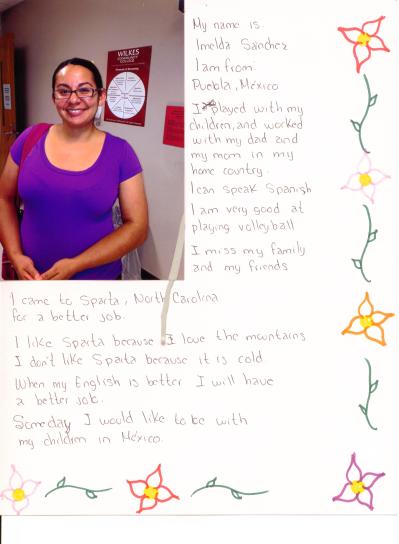 WILKES
COMMUNITY
COLLEGE
My name is
Imelda Sánchez
I am from
Puebla, México
I played with my
children, and worked
with my dad and
my mom in my
home country.
I can speak Spanish
I am very good at
playing volleyball
I miss my family
and my friends
I came to Sparta, North Carolina
for a better job.
I like Sparta because I love the mountains
I don't like Sparta because it is cold.
When my English is better I will have
a better job.
Someday I would like to be with
my children in México.